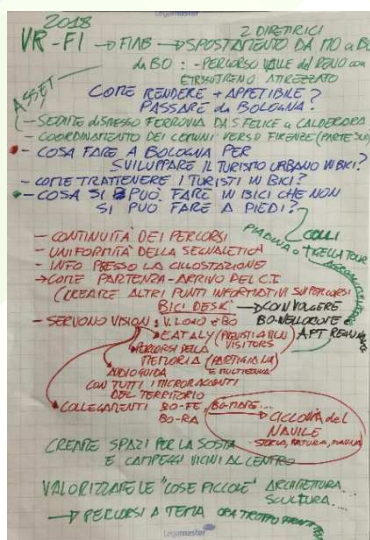 2018
VR-FI → FIAB → SPOSTAMENTO DA MO a BO
2 DIRETTRICI
da BO: - PERCORSO VALLE del RENO con
ATTREZZATO
ASSET
COME RENDERE + APPETIBILE
PASSARE da BOLOGNA?
- SEDIME dismesso FERROVIA DA S. FELICE a CALDERARA
- COORDINAMENTO DEI COMUNI VERSO FIRENZE (PARTE SUD)
- COSA FARE A BOLOGNA PER
SVILUPPARE IL TURISMO URBANO IN BICI?
- COME TRATTENERE I TURISTI IN BICI?
- COSA SI PUÒ FARE IN BICI CHE NON
SI PUÒ FARE A PIEDI?
COLLI
PIANURA
TOUR
- CONTINUITÀ DEI PERCORSI
- UNIFORMITÀ DELLA SEGNALETICA
- INFO PRESSO LA CICLOSTAZIONE
→ COME PARTENZA-ARRIVO DEL C.T.
(CREARE ALTRI PUNTI INFORMATIVI SUI PERCORSI
BICI DESK → COINVOLGERE
BO-WELCOME E
APT
- SERVONO VISION: V. LORO e BO
EATALY
VISITORS
PERCORSI DELLA
MEMORIA (PARTIGIANA)
AUDIOGUIDA
E MULTILINGUA
CON TUTTI I MICRORACCONTI
DEL TERRITORIO
COLLEGAMENTI BO-FE, BO-MARE...
BO-RA
→ CICLOVIA del
NAVILE
- STORIA, NATURA,
CREARE SPAZI PER LA SOSTA
E CAMPEGGI VICINI AL CENTRO
VALORIZZARE LE "COSE PICCOLE" ARCHITETTURA...
SCULTURA...
→ PERCORSI A TEMA ORA TROPPO
Legamaster